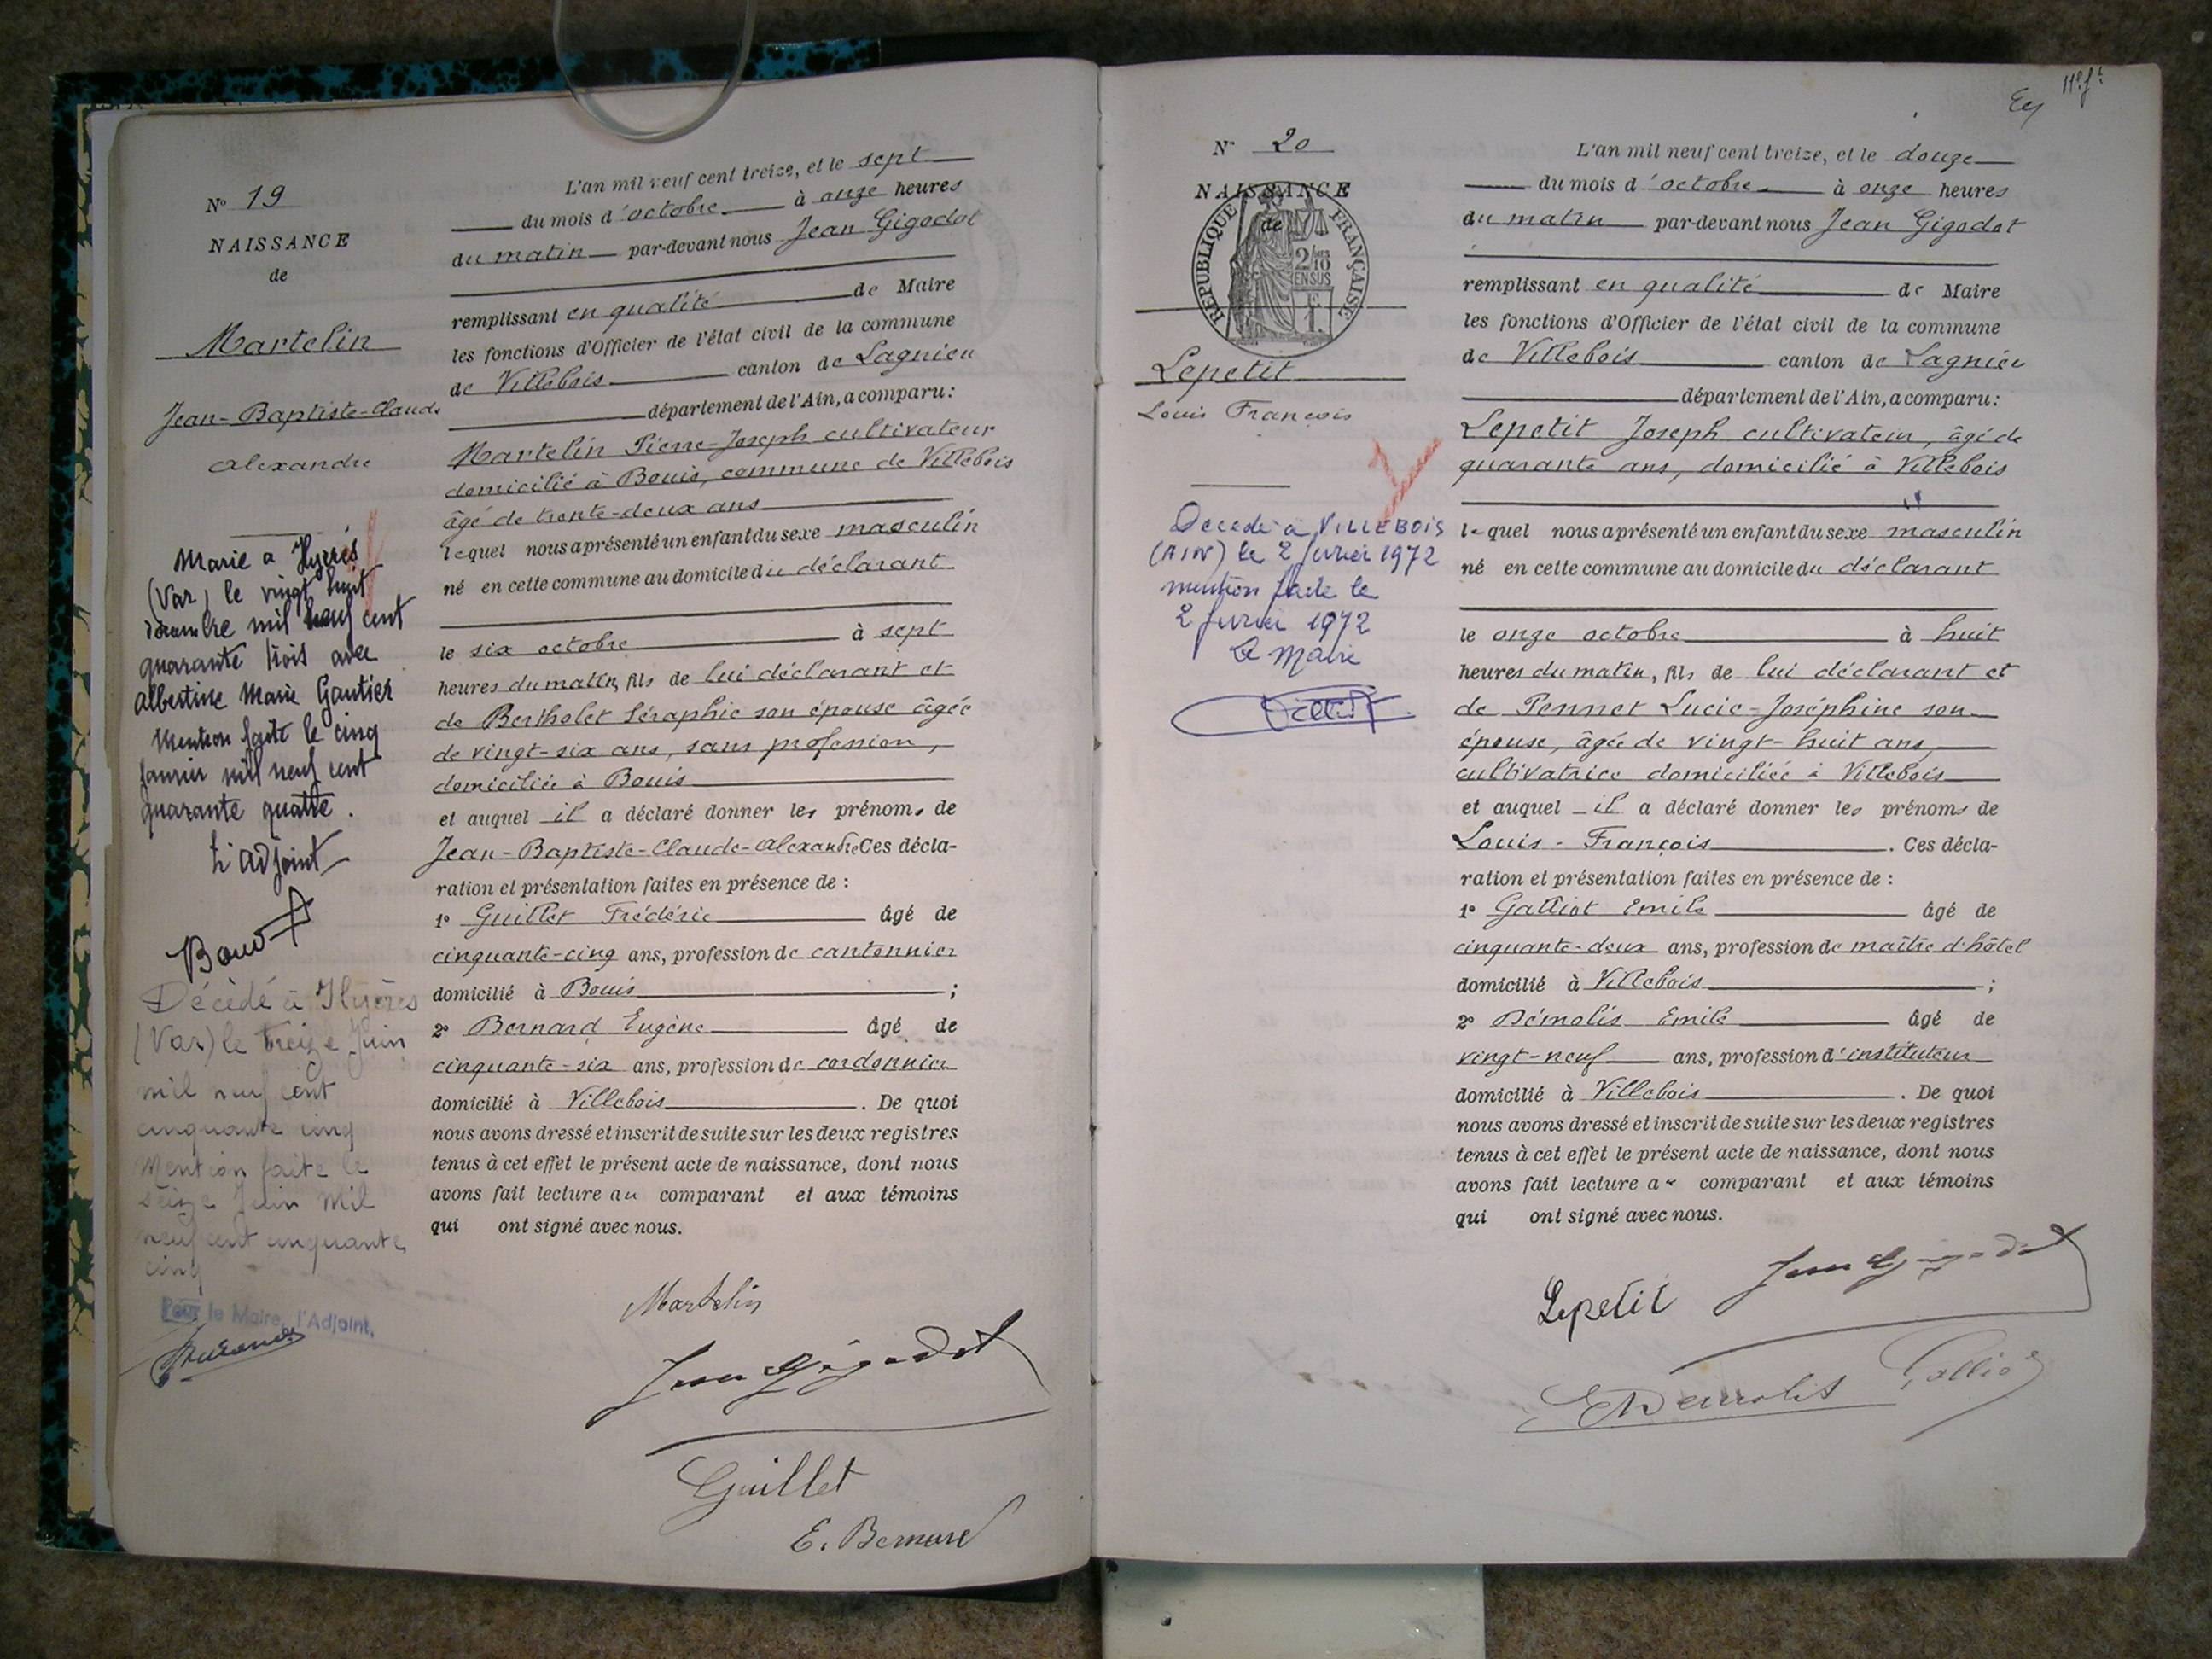 N° 19
NAISSANCE
de
Martelin
Jean-Baptiste-Claude
Alexandre
Marié à Hyères
(Var) le vingt huit
décembre mil neuf cent
quarante trois avec
Albertine Marie Gautier
Mention faite le cinq
janvier mil neuf cent
quarante quatre.
L'adjoint
Décédé à Hyères
(Var) le treize Juin
mil neuf cent
cinquante cinq
Mention faite le
seize Juin mil
neuf cent cinquante
cinq
Pour le Maire, l'Adjoint,
L'an mil neuf cent treize, et le sept
du mois d'octobre à onze heures
du matin par-devant nous Jean Gigodot
remplissant en qualité de Maire
les fonctions d'Officier de l'état civil de la commune
de Villebois canton de Lagnieu
département de l'Ain, a comparu:
Martelin Pierre-Joseph cultivateur
domicilié à Bouis, commune de Villebois
âgé de trente-deux ans
lequel nous a présenté un enfant du sexe masculin
né en cette commune au domicile du déclarant
le six octobre à sept
heures du matin, fils de lui déclarant et
de Bertholet Séraphie son épouse âgée
de vingt-six ans, sans profession,
domiciliée à Bouis
et auquel il a déclaré donner les prénoms de
Jean-Baptiste-Claude-Alexandre Ces décla-
ration et présentation faites en présence de :
1° Guillet Frédéric âgé de
cinquante-cinq ans, profession de cantonnier
domicilié à Bouis ;
2° Bernard Eugène âgé de
cinquante-six ans, profession de cordonnier
domicilié à Villebois . De quoi
nous avons dressé et inscrit de suite sur les deux registres
tenus à cet effet le présent acte de naissance, dont nous
avons fait lecture au comparant et aux témoins
qui ont signé avec nous.
Martelin
Jean Gigodot
Guillet
E. Bernard
N° 20
NAISSANCE
de
RÉPUBLIQUE FRANÇAISE
2/10
EN SUS
Lepetit
Louis François
Décédé à VILLEBOIS
(AIN) le 2 février 1972
mention faite le
2 février 1972
Le Maire
L'an mil neuf cent treize, et le douze
du mois d'octobre à onze heures
du matin par-devant nous Jean Gigodot
remplissant en qualité de Maire
les fonctions d'Officier de l'état civil de la commune
de Villebois canton de Lagnieu
département de l'Ain, a comparu:
Lepetit Joseph cultivateur, âgé de
quarante ans, domicilié à Villebois
lequel nous a présenté un enfant du sexe masculin
né en cette commune au domicile du déclarant
le onze octobre à huit
heures du matin, fils de lui déclarant et
de Pennet Lucie-Joséphine son
épouse, âgée de vingt-huit ans,
cultivatrice domiciliée à Villebois
et auquel il a déclaré donner les prénoms de
Louis-François . Ces décla-
ration et présentation faites en présence de :
1° Galliot Emile âgé de
cinquante-deux ans, profession de maître d'hôtel
domicilié à Villebois ;
2° Démolis Emile âgé de
vingt-neuf ans, profession d'instituteur
domicilié à Villebois . De quoi
nous avons dressé et inscrit de suite sur les deux registres
tenus à cet effet le présent acte de naissance, dont nous
avons fait lecture au comparant et aux témoins
qui ont signé avec nous.
Lepetit Jean Gigodot
E Demolis Galliot